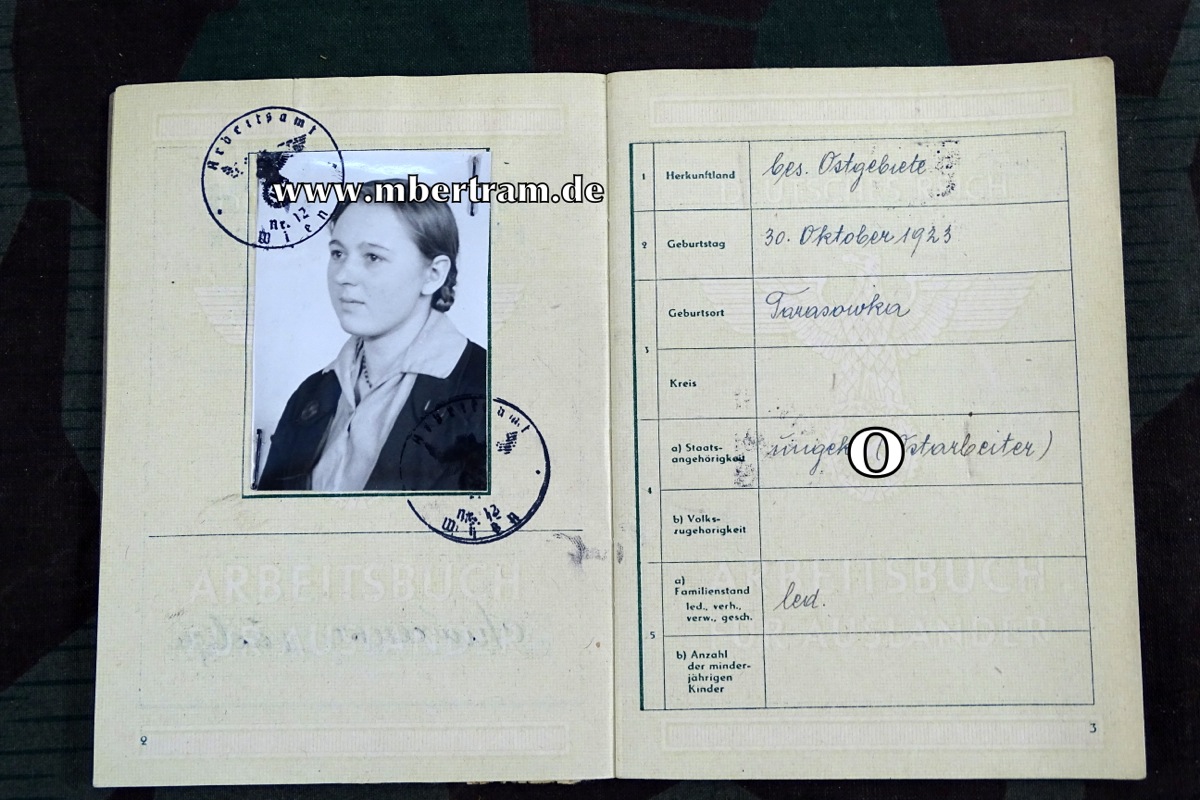 Arbeitsamt
Nr. 12
Wien
www.mbertram.de
Arbeitsamt
Nr. 12
Wien
ARBEITSBUCH
2
1 Herkunftland bes. Ostgebiete
2 Geburtstag 30. Oktober 1923
3 Geburtsort Tarasowka
Kreis
4 a) Staats-
angehörigkeit ungekl (Ostarbeiter)
b) Volks-
zugehörigkeit
5 a)
Familienstand led.
led., verh.,
verw., gesch.
b) Anzahl
der minder-
jährigen
Kinder
ARBEITSBUCH
FÜR AUSLÄNDER
3